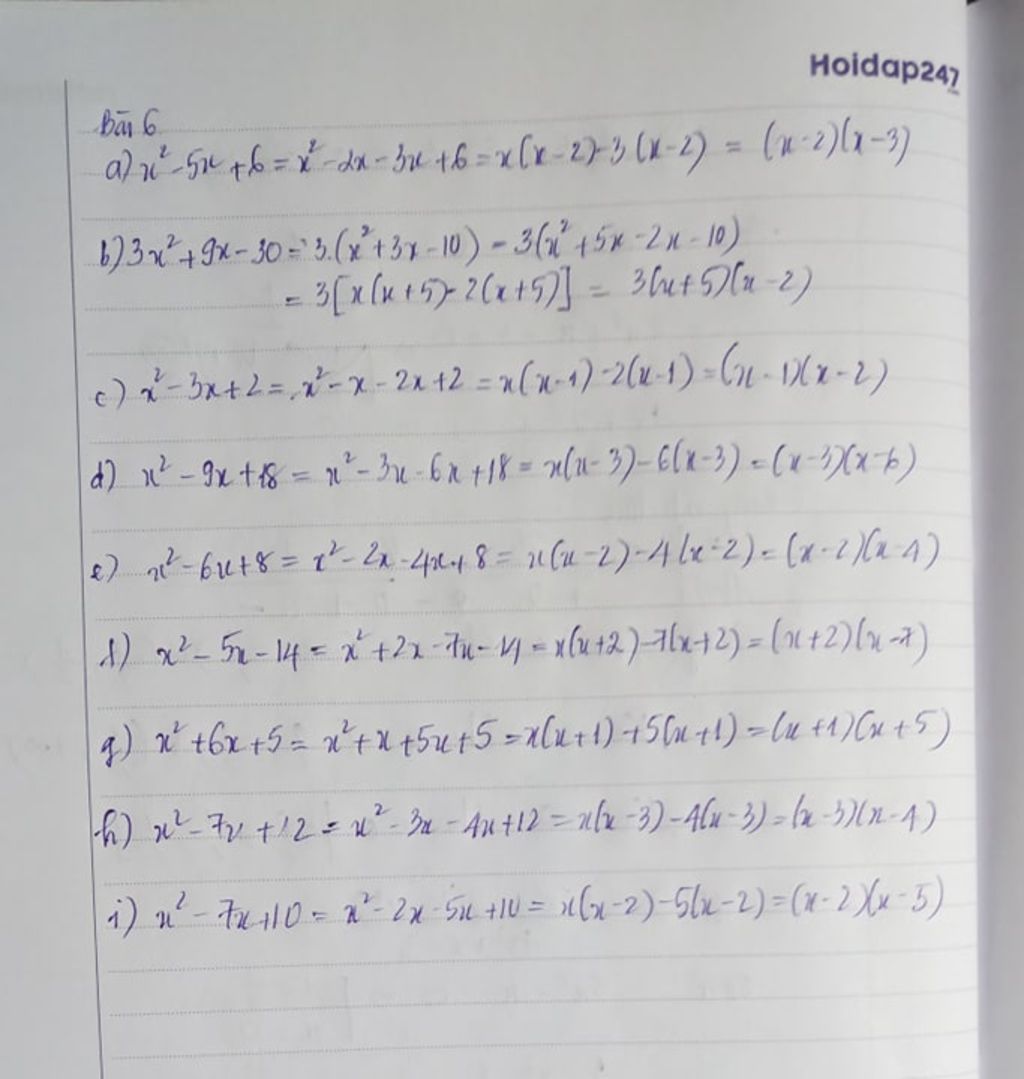 Hoidap247
Bài 6
a) x² - 5x + 6 = x² - 2x - 3x + 6 = x(x - 2) - 3(x - 2) = (x - 2)(x - 3)
b) 3x² + 9x - 30 = 3.(x² + 3x - 10) = 3(x² + 5x - 2x - 10)
= 3[x(x + 5) - 2(x + 5)] = 3(x + 5)(x - 2)
c) x² - 3x + 2 = x² - x - 2x + 2 = x(x - 1) - 2(x - 1) = (x - 1)(x - 2)
d) x² - 9x + 18 = x² - 3x - 6x + 18 = x(x - 3) - 6(x - 3) = (x - 3)(x - 6)
e) x² - 6x + 8 = x² - 2x - 4x + 8 = x(x - 2) - 4(x - 2) = (x - 2)(x - 4)
f) x² - 5x - 14 = x² + 2x - 7x - 14 = x(x + 2) - 7(x + 2) = (x + 2)(x - 7)
g) x² + 6x + 5 = x² + x + 5x + 5 = x(x + 1) + 5(x + 1) = (x + 1)(x + 5)
h) x² - 7x + 12 = x² - 3x - 4x + 12 = x(x - 3) - 4(x - 3) = (x - 3)(x - 4)
i) x² - 7x + 10 = x² - 2x - 5x + 10 = x(x - 2) - 5(x - 2) = (x - 2)(x - 5)